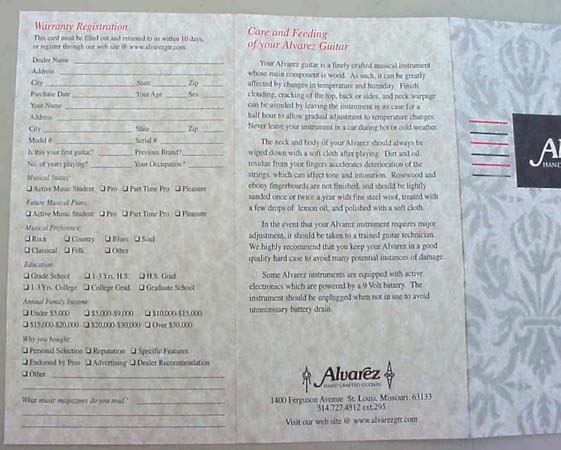 Warranty Registration
This card must be filled out and returned to us within 10 days,
or register through our web site @ www.alvarezgtr.com.
Dealer Name
Address
City State Zip
Purchase Date Your Age Sex
Your Name
Address
City State Zip
Model # Serial #
Is this your first guitar? Previous Brand?
No. of years playing? Your Occupation?
Musical Status:
❑ Active Music Student ❑ Pro ❑ Part Time Pro ❑ Pleasure
Future Musical Plans:
❑ Active Music Student ❑ Pro ❑ Part Time Pro ❑ Pleasure
Musical Preference:
❑ Rock ❑ Country ❑ Blues ❑ Soul
❑ Classical ❑ Folk ❑ Other
Education:
❑ Grade School ❑ 1-3 Yrs. H.S. ❑ H.S. Grad
❑ 1-3 Yrs. College ❑ College Grad. ❑ Graduate School
Annual Family Income:
❑ Under $5,000 ❑ $5,000-$9,000 ❑ $10,000-$15,000
❑ $15,000-$20,000 ❑ $20,000-$30,000 ❑ Over $30,000
Why you bought:
❑ Personal Selection ❑ Reputation ❑ Specific Features
❑ Endorsed by Pros ❑ Advertising ❑ Dealer Recommendation
❑ Other
What music magazines do you read?
Care and Feeding
of your Alvarez Guitar
Your Alvarez guitar is a finely crafted musical instrument
whose main component is wood. As such, it can be greatly
affected by changes in temperature and humidity. Finish
clouding, cracking of the top, back or sides, and neck warpage
can be avoided by leaving the instrument in its case for a
half hour to allow gradual adjustment to temperature changes.
Never leave your instrument in a car during hot or cold weather.
The neck and body of your Alvarez should always be
wiped down with a soft cloth after playing. Dirt and oil
residue from your fingers accelerates deterioration of the
strings, which can affect tone and intonation. Rosewood and
ebony fingerboards are not finished, and should be lightly
sanded once or twice a year with fine steel wool, treated with
a few drops of lemon oil, and polished with a soft cloth.
In the event that your Alvarez instrument requires major
adjustment, it should be taken to a trained guitar technician.
We highly recommend that you keep your Alvarez in a good
quality hard case to avoid many potential instances of damage.
Some Alvarez instruments are equipped with active
electronics which are powered by a 9 Volt battery. The
instrument should be unplugged when not in use to avoid
unnecessary battery drain.
Alvarez
HAND CRAFTED GUITARS
1400 Ferguson Avenue St. Louis, Missouri 63133
314.727.4512 ext.295
Visit our web site @ www.alvarezgtr.com
Al
HAND